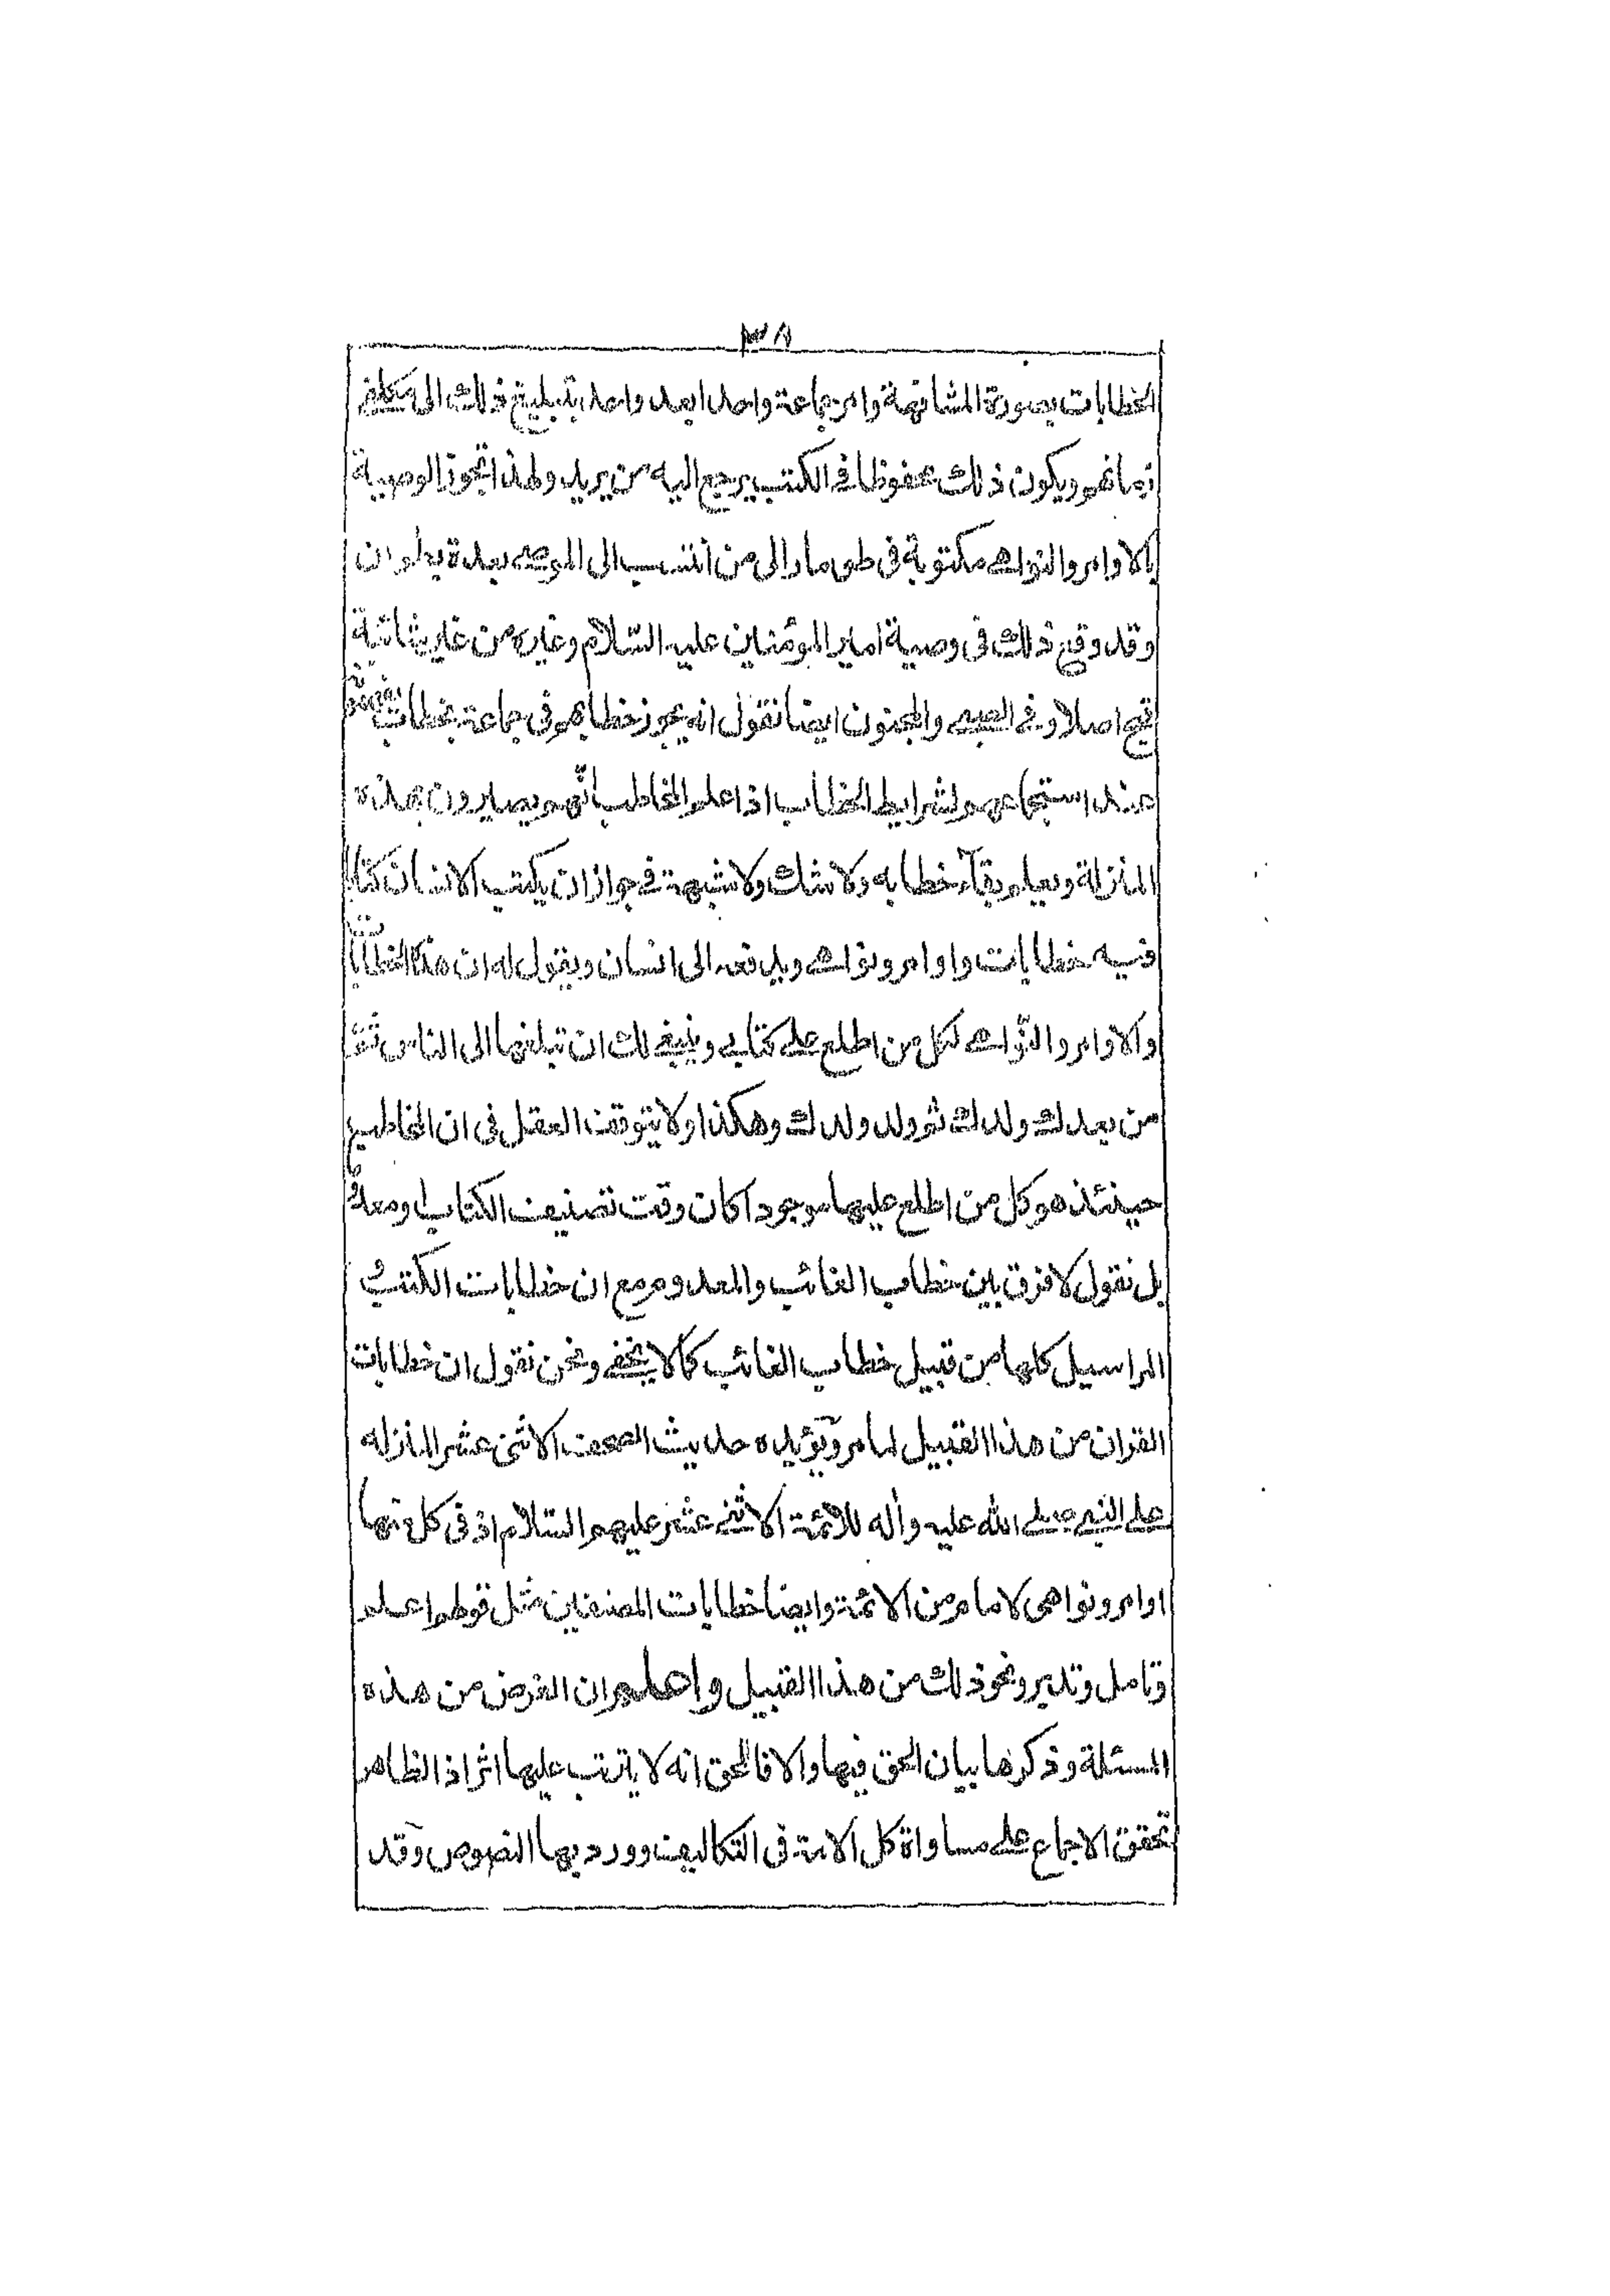 ٣٨
الخطابات بصورة المشافهة وامر جماعة واحدا بعد واحد بتبليغ ذلك الى مكلفى
زمانهم ويكون ذلك محفوظا فى الكتب يرجع اليه من يريد ولهذا تجوز الوصية
بالاوامر والنواهى مكتوبة فى طومار الى من انتسب الى الموصى بعدة بطون
وقد وقع ذلك فى وصية امير المؤمنين عليه السّلام وغيره من غير شائبة
قبح اصلا وفى الصبى والمجنون ايضا نقول انه يجوز خطابهم فى جماعة بخطاب
عند استجماعهم لشرايط الخطاب اذا علم المخاطب انّهم يصيرون بهذه
المنزلة ويعلم بقآء خطابه ولا شك ولا شبهة فى جواز ان يكتب الانسان كتابا
فيه خطابات واوامر ونواهى ويدفعه الى انسان ويقول له ان هذه الخطابات
والاوامر والنّواهى لكل من اطلع على كتابى وينبغى لك ان تبلغها الى الناس ثمّ
من بعدك ولدك ثم ولد ولدك وهكذا ولا يتوقف العقل فى ان المخاطب
حينئذ هو كل من اطلع عليها موجودا كان وقت تصنيف الكتاب او معدوما
بل نقول لا فرق بين خطاب الغائب والمعدوم مع ان خطابات الكتب و
المراسيل كلها من قبيل خطاب الغائب كما لا يخفى ونحن نقول ان خطابات
القران من هذا القبيل لما مر ويؤيده حديث الصحف الاثنى عشر المنزلة
على النبى صلى الله عليه وآله للائمة الاثنى عشر عليهم السّلام اذ فى كل منها
اوامر ونواهى لامام من الائمة وايضا خطابات المصنفين مثل قولهم اعلم
وتامل وتدبر ونحو ذلك من هذا القبيل واعلم ان الغرض من هذه
المسئلة وذكرها بيان الحق فيها والا فالحق انه لا يترتب عليها اثر اذ الظاهر
تحقق الاجماع على مساواة كل الامة فى التكاليف وورد بها النصوص وقد